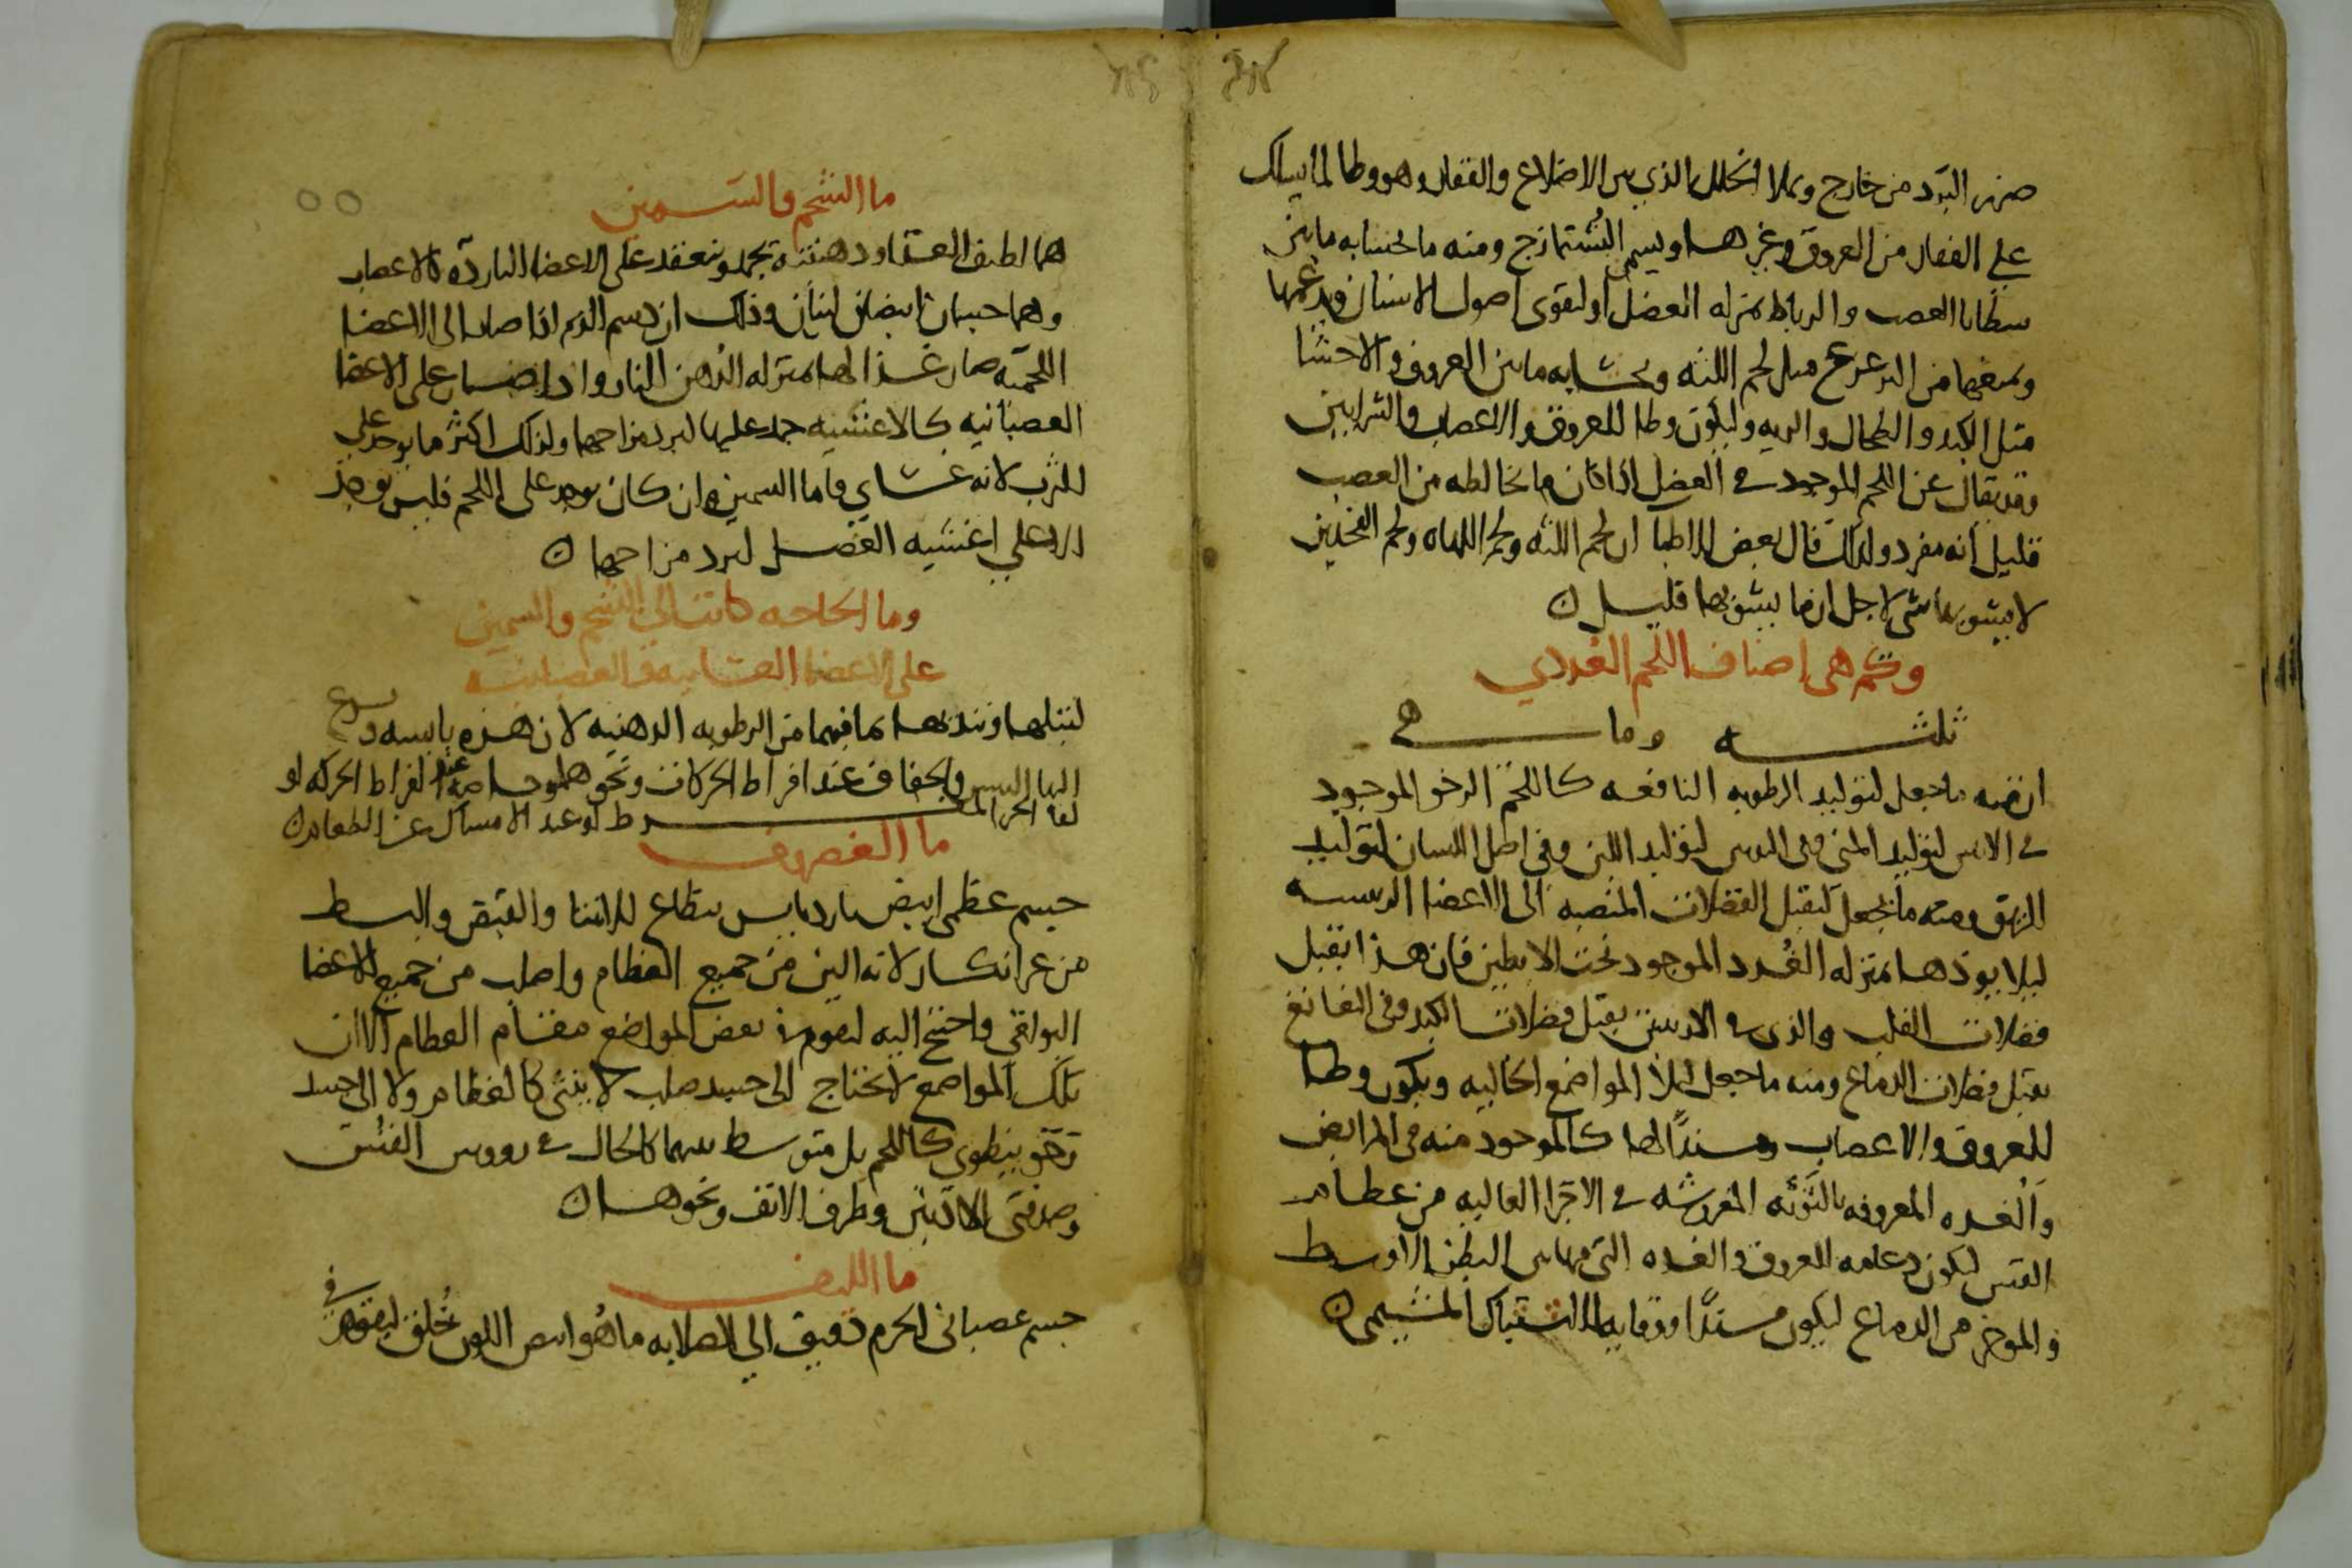 ضرر البرد من خارج ويملا الخلل الذي بين الاضلاع والفقار وهو وطا لما يسلك
على الفقار من العروق وغيرها ويسمى البشتمازج ومنه ما يحشا به ما بين
شظايا العصب والرباط بمنزله العضل او ليقوى اصول الاسنان ويدعمها
ويمنعها من التزعزع مثل لحم اللثه ويحشا به ما بين العروق والاحشا
مثل الكبد والطحال والريه وليكون وطا للعروق والاعصاب والشرايين
وقد يقال عن اللحم الموجود في العضل اذا كان ما يخالطه من العصب
قليل انه مفرد ولذلك قال بعض الاطبا ان لحم اللثه ولحم اللهاه ولحم الفخذين
لا يشوبها شي لاجل ان ما يشوبها قليل ن
وكم هي اصناف اللحم الغددي
ثلثه وما هي
ان منه ما جعل لتوليد الرطوبه النافعه كاللحم الرخو الموجود
في الانثيين لتوليد المني وفي الثديين لتوليد اللبن وفي اصل اللسان لتوليد
الريق ومنه ما يجعل ليقبل الفضلات المنصبه الى الاعضا الرييسه
ليلا يوذها بمنزله الغدد الموجود تحت الابطين فان هذا يقبل
فضلات القلب والذي في الاربيتين يقبل فضلات الكبد وفي النغانغ
يقبل فضلات الدماغ ومنه ما جعل ليملا المواضع الخاليه ويكون وطا
للعروق والاعصاب وسندًا لها كالموجود منه في المرابض
والغده المعروفه بالتوثه المفروشه في الاجزا العاليه من عظام
القس ليكون دعامه للعروق والغده التي فيما بين البطن الاوسط
والموخر من الدماغ ليكون مسندًا ووقايه للاشتباك المشيمي ن
ما الشحم والسمين
هما لطيف الغذا ودهنيته تجمد وتنعقد على الاعضا البارده كالاعصاب
وهما جسمان ابيضان لينان وذلك ان دسم الدم اذا صار الى الاعضا
اللحميه صار غذا لها بمنزله الدهن للنار واذا انصب على الاعضا
العصبانيه كالاغشيه جمد عليها لبرد مزاجها ولذلك اكثر ما يوجد على
الثرب لانه غشاي واما السمين وان كان يوجد على اللحم فليس يوجد
الا على اغشيه العضل لبرد مزاجها ن
وما الحاجه كانت الى الشحم والسمين
على الاعضا الغشاييه والعصبانيه
لتبلها وتنديها بما فيهما من الرطوبه الدهنيه لان هذه يابسه ويسرع
اليها اليبس والجفاف عند افراط الحركات ونحوها وخاصه عند افراط الحركه او
لقا الحر المفرط او عند الامساك عن الطعام ن
ما الغضروف
جسم عظمي ابيض بارد يابس يطاع للانثنا والقبض والبسط
من غير انكسار لانه الين من جميع العظام واصلب من جميع الاعضا
البواقي واحتيج اليه ليقوم في بعض المواضع مقام العظام الا ان
تلك المواضع لا يحتاج الى جسد صلب لا ينثني كالعظام ولا الى جسد
رخو ينطوي كاللحم بل متوسط بينهما كالحال في رووس القس
وصدفتي الاذنين وطرف الانف ونحوها ن
ما الليف
جسم عصباني الجرم دقيق الى الصلابه ما هو ابيض اللون خُلق ليقوم في